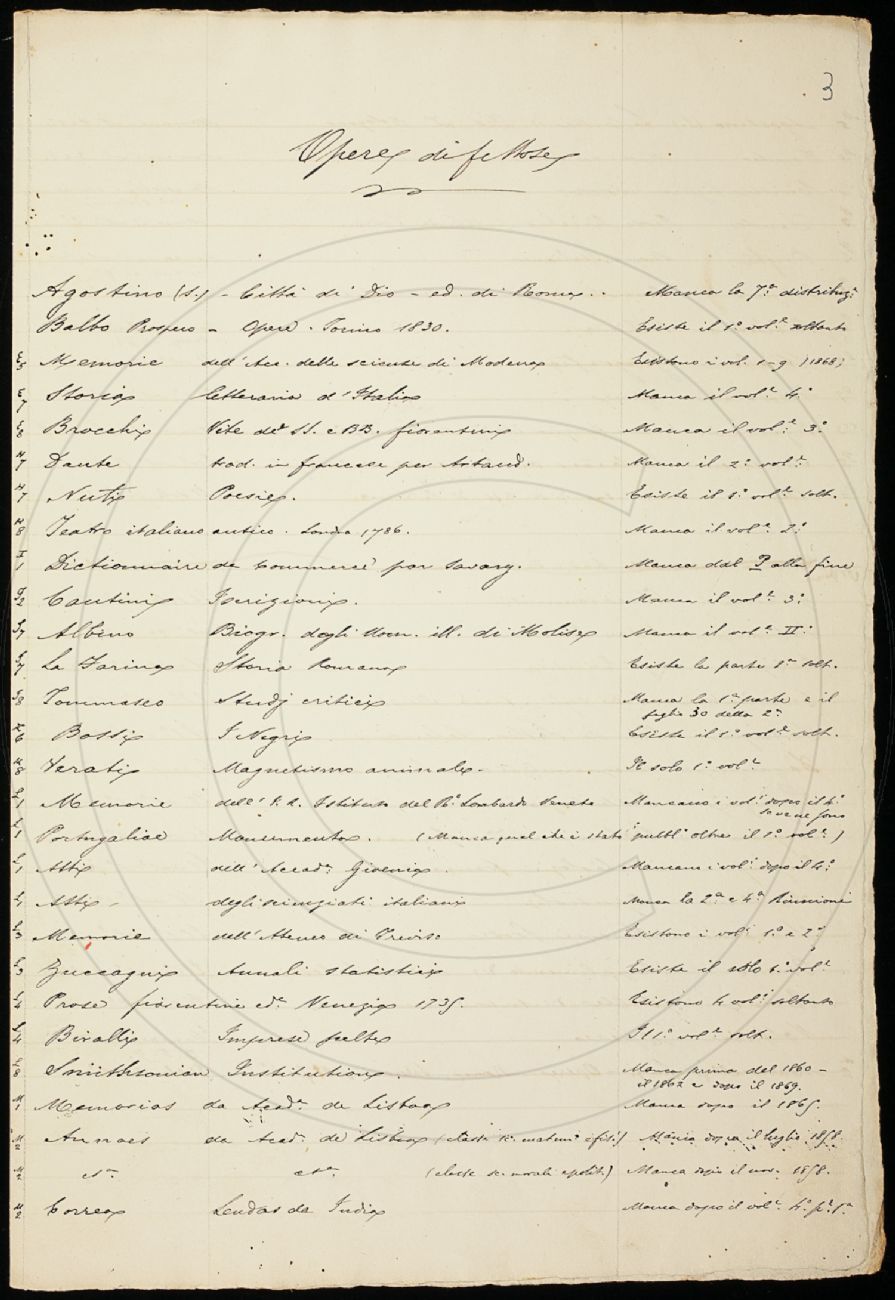 3
Opere difettose
Agostino (S.) - Città di Dio - ed. di Roma . . Manca la 7ª distribuzº
Balbo Prospero - Opere . Torino 1830. Esiste il 1º volº soltanto
Memorie dell'Acc. delle scienze di Modena Esistono i vol. 1-9 (1868)
E 7 Storia letteraria d'Italia Manca il volº 4º
E 8 Brocchi Vite dei SS. e BB. fiorentini Manca il volº 3º
H 7 Dante trad. in francese per Artaud. Manca il 2º volº
H 7 Nuti Poesie. Esiste il 1º volº solt.
H 8 Teatro italiano antico . Londra 1786. Manca il volº 2º
1 Dictionnaire de Commerce par Savary. Manca dal P alla fine
2 Cantini Iscrizioni. Manca il volº 3º
7 Albino Biogr. degli Uom. ill. di Molise Manca il volº IIº
7 La Farina Storia Romana Esiste la parte 1ª solt.
8 Tommaseo Studj critici Manca la 1ª parte e il
foglio 30 della 2ª
6 Bossi I Negri Esiste il 1º volº solt.
8 Verati Magnetismo animale. Il solo 1º volº
L 1 Memorie dell'I. R. Istituto del Rº Lombardo Veneto Mancano i volⁱ dopo il 4º
se ve ne sono
L 1 Portugaliae Monumenta . (Manca quel che è stato pubblº oltre il 1º volº)
L 1 Atti dell'Accadª Gioenia . Mancano i volⁱ dopo il 4º
L 1 Atti - degli scienziati italiani Manca la 2ª e 4ª Riunione
L 3 Memorie dell'Ateneo di Treviso Esistono i volⁱ 1º e 2º
L 3 Zuccagni Annali statistici Esiste il solo 1º volº
L 4 Prose fiorentine edº Venezia 1735. Esistono 4 volⁱ soltanto
L 4 Biralli Imprese scelte Il 1º volº solt.
L 8 Smithsonian Institution . Manca prima del 1860 -
il 1862 e dopo il 1869.
M 1 Memorias da Acadª de Lisboa Manca dopo il 1865.
M 2 Annaes da Acad. de Lisboa (classe matemº e fisº) Manca dopo il luglio 1858
M 2 etª etª (classe sc. morali e polit.) Manca dopo il nov. 1858.
M 2 Correa Lendas da India Manca dopo il volº 4º pº 1ª